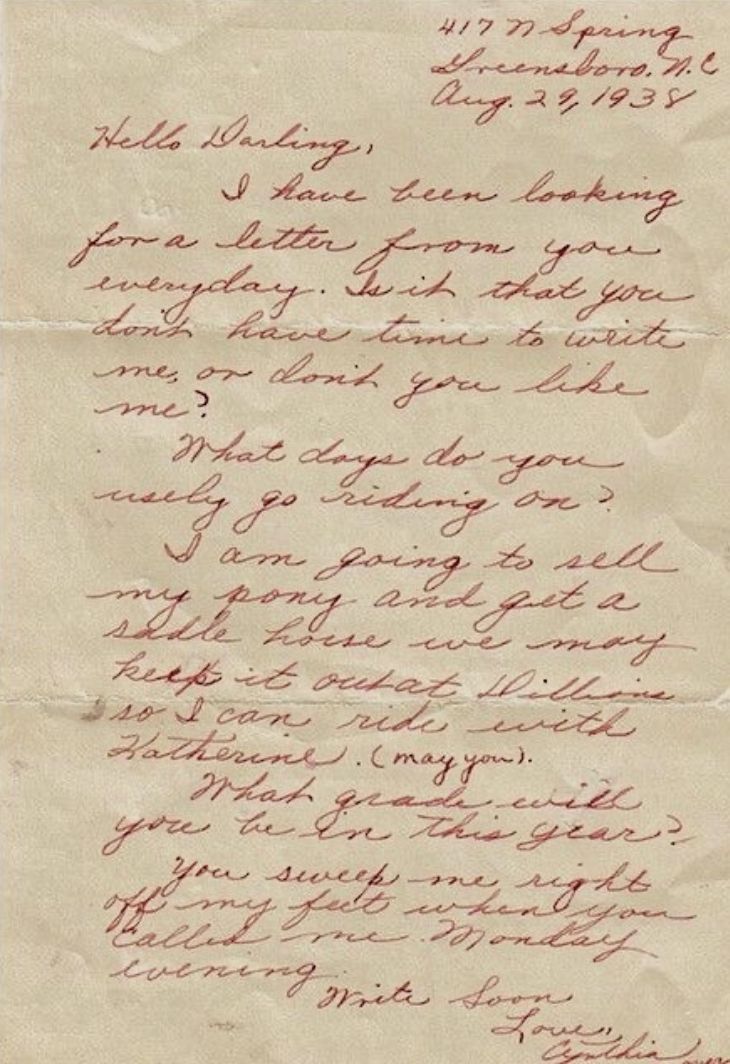 417 N Spring
Greensboro. N.C
Aug. 29, 1938
Hello Darling,
I have been looking
for a letter from you
everyday. Is it that you
don't have time to write
me, or don't you like
me?
What days do you
usely go riding on?
I am going to sell
my pony and get a
sadle horse we may
keep it out at Dillions
so I can ride with
Katherine. (may you).
What grade will
you be in this year?
You sweep me right
off my feet when you
called me Monday
evening.
Write Soon
Love,
Cynthia